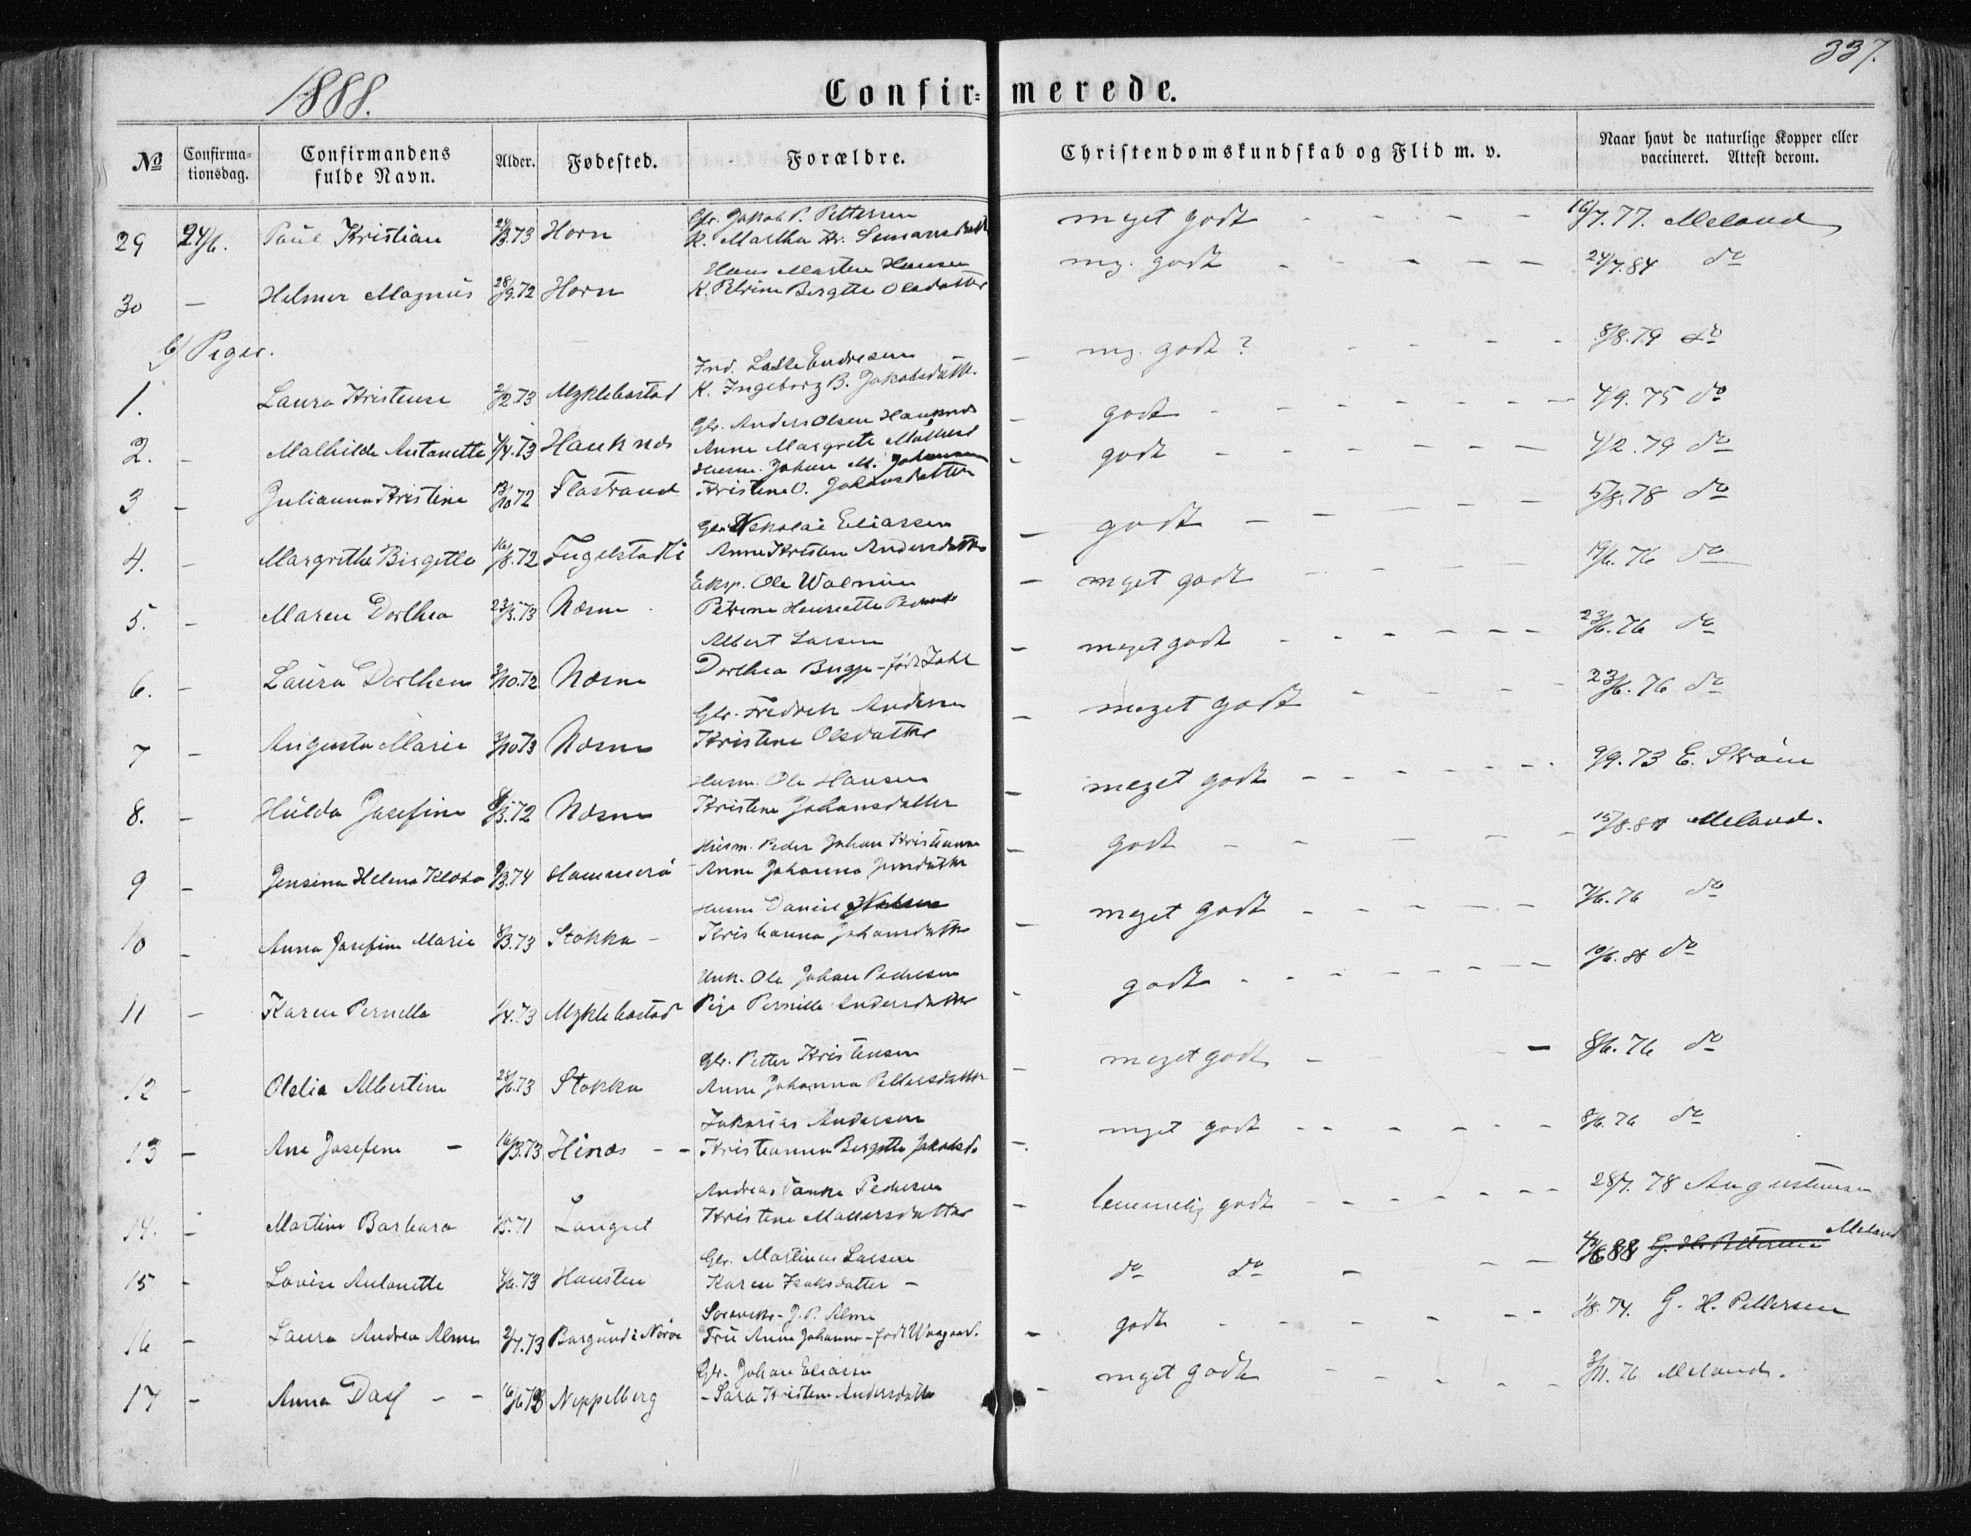 337.
1888.
Confirmerede.
No Confirmationsdag. Confirmandens fulde Navn. Alder. Fødested. Forældre. Christendomskundskab og Flid m. v. Naar havt de naturlige Kopper eller vaccineret. Attest derom.
Gbr. Jakob P. Pettersen
29 24/6. Paul Kristian 24/3.73 Horn K. Martha Kr. meget godt - - - - - 16/7.77. Meland
Hans Morten Hansen
30 — Helmer Magnus 28/9.72 Horn K. Petrine Bergitte Olsdatter mg. godt - - - - - 24/7.84 do
b/ Piger.
Ind. Lasse Endresen
1. Laura Kristense 2/2.73 Myklebostad K. Ingeborg B. Jakobsdatter - mg. godt? - - - - 8/8.79 do
Gbr. Anders Olsen Hauknes
2. - Mathilde Antonette 4/4.73 Hauknes Anne Margrete - godt - - - - - 4/9.75 do
Husm. Johan M. Johansen
3 - Julianna Kristine 13/10.72 Flostrand Kristine O. Johansdatter - godt - - - - - 4/2.79 do
Gbr. Nikolai Eliassen
4. - Margrethe Birgitte 16/8.72 Fugelstadli Anne Kristine Andersdatter - godt - - - - - 5/8.78 do
Eksp. Ole Walnum
5. - Maren Dorthea 23/5.73 Næsne Petrine Henriette - meget godt - - - - - 19/6.76 do
Albert Larsen
6. - Laura Dorthea 3/10.72 Næsne Dorthea Bugge - født Dahl - meget godt - - - - - 23/6.76 do
Gbr. Fredrik Andersen
7 - Augusta Marie 3/10.73 Næsne Kristine Olsdatter - meget godt - - - 23/6.76 do
Husm. Ole Hansen
8. - Hulda Josefine 8/3.72 Næsne Kristine Johansdatter - meget godt - - - - - 9/9.73 E. Strøm
Husm. Peder Johan Kristiansen
9 - Jensine Helena 9/3.74 Hammerø Anne Johanna Jensdatter - godt - - - - - 15/8.84 Meland.
Husm Daniel
10 - Anna Josefine Marie 8/3.73 Stokka - Kristianna Johansdatter - meget godt - - - - - 7/6.76 do
Unk. Ole Johan Pedersen
11 - Karen Pernella 1/4.73 Myklebostad Pige Pernille Andersdatter - godt - - - - - 10/6.88 do
Gbr. Petter Kristensen
12 - Otelia Albertine 28/6.73 Stokka Anne Johanna Pettersdatter meget godt - - 8/6.76 do
Zakarias Andersen
13 - Ane Josefine - 16/3.73 Hinæs - - Kristianna Bergitte Jakobsd. - meget godt - - - - - 8/6.76 do
Andreas Tanke Pedersen
14. - Martine Barbara 1/5.71 Langset Kristine Mattersdatter - temmelig godt - - - - - 28/7.78 Augustinsen
Gbr. Martinus Larsen
15 - Lovise Antonette 4/6.73 Hausten Karen Isaksdatter - do do - - - 88 G. H. Pettersen Meland
J. P. Alme
16 - Laura Andrea Alme 2/7.73 Borgund i Norve Frue Anne Johanna - født Waagaard. - godt - - - - - 1/8.74. G. H. Pettersen
Gbr. Johan Eliassen
17 - Anna Dass - - 16/6.73 Neppelberg - Sara Kristine Andersdatter - meget godt - - - - 3/11.76 Meland.